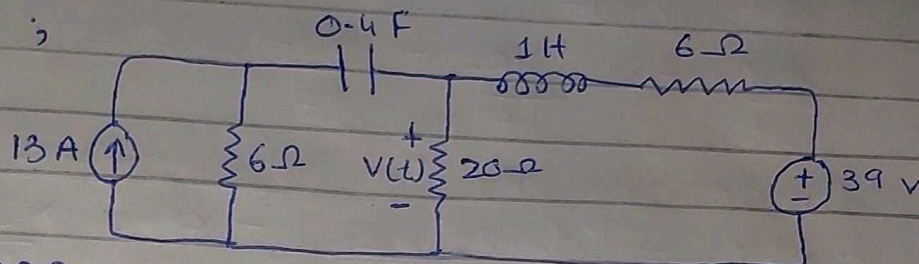 ;
0.4 F
1H
6Ω
13 A
6Ω
+
V(t)
-
20Ω
+
-
39 V